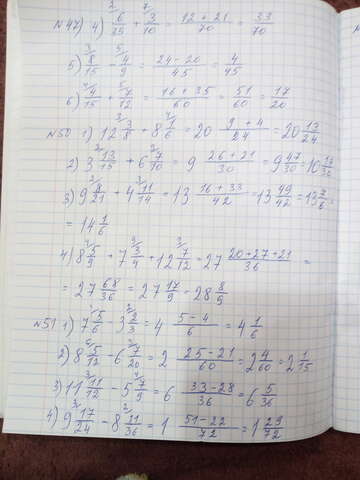 №47) 4) 6/35 + 3/10 = (12+21)/70 = 33/70
5) 8/15 - 4/9 = (24-20)/45 = 4/45
6) 4/15 + 7/12 = (16+35)/60 = 51/60 = 17/20
№50 1) 12 3/8 + 8 1/6 = 20 (9+4)/24 = 20 13/24
2) 3 13/15 + 6 7/10 = 9 (26+21)/30 = 9 47/30 = 10 17/30
3) 9 8/21 + 4 11/14 = 13 (16+33)/42 = 13 49/42 = 13 7/6 =
= 14 1/6
4) 8 5/9 + 7 3/4 + 12 7/12 = 27 (20+27+21)/36 =
= 27 68/36 = 27 17/9 = 28 8/9
№51 1) 7 5/6 - 3 2/3 = 4 (5-4)/6 = 4 1/6
2) 8 5/12 - 6 7/20 = 2 (25-21)/60 = 2 4/60 = 2 1/15
3) 11 11/12 - 5 7/9 = 6 (33-28)/36 = 6 5/36
4) 9 17/24 - 8 11/36 = 1 (51-22)/72 = 1 29/72